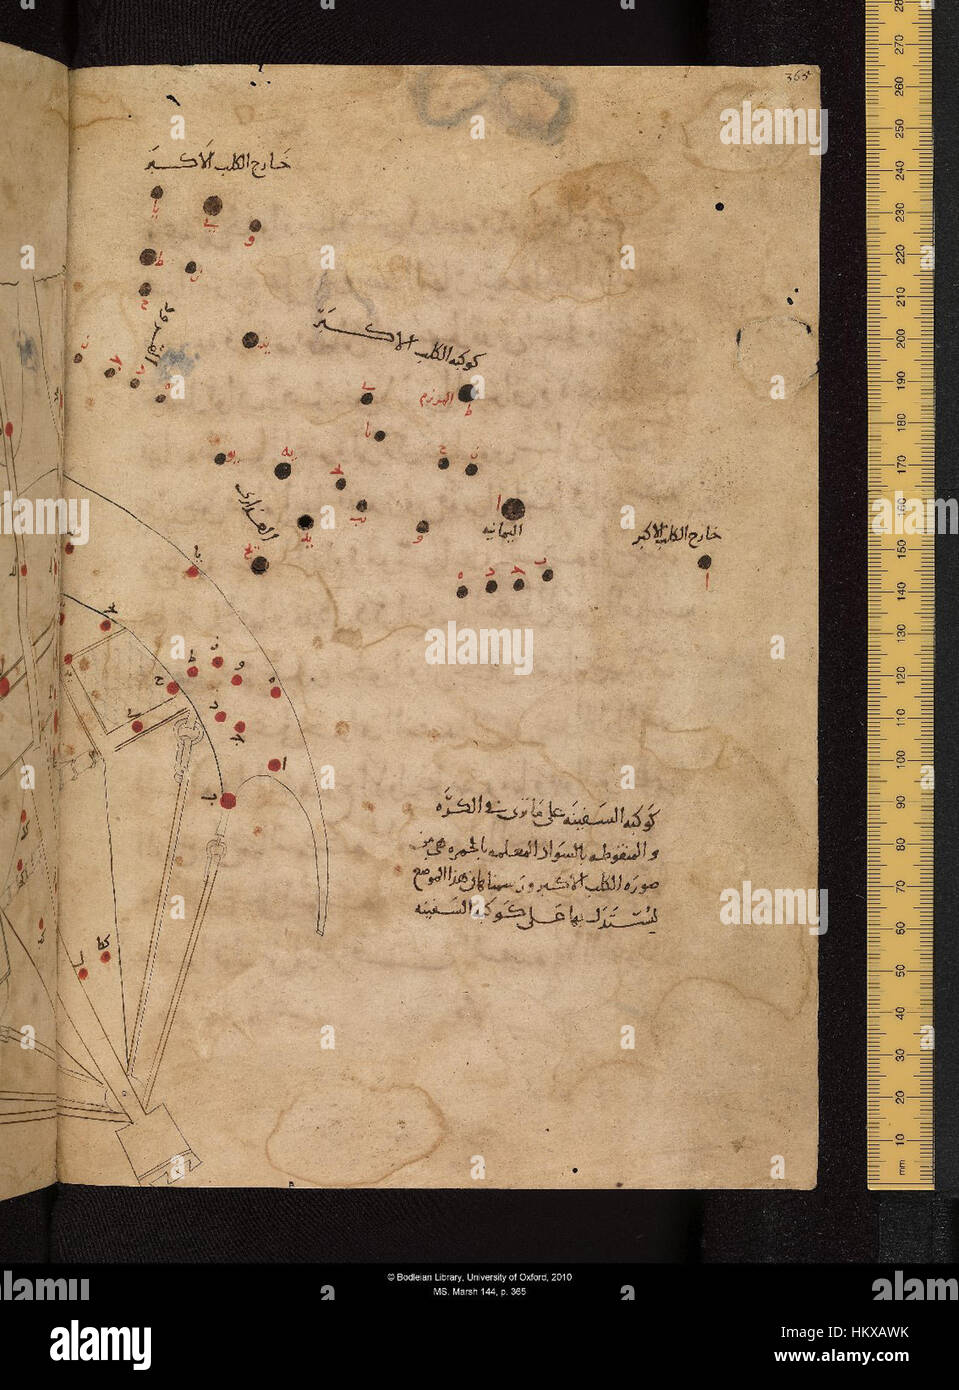 365
خارج الكلب الاكبر
يا
و
ط
ح
القرود
كوكبة الكلب الاكبر
المرزم
ط
يا
يه
يو
ح
ا
اليمانيه
العذارى
يد
و
ه
خارج الكلب الاكبر
ا
كوكبه السفينه على ما ترى في الكره
والمنقوطه بالسواد المعلمه بالحمره هي من
صوره الكلب الاكبر ورسمناها في هذا الموضع
ليستدل بها على كوكبه السفينه
280
270
260
250
240
230
220
210
200
190
180
170
160
150
140
130
120
110
100
90
80
70
60
50
40
30
20
10
mm
© Bodleian Library, University of Oxford, 2010
MS. Marsh 144, p. 365
alamy
a
alamy
Image ID: HKXAWK
www.alamy.com